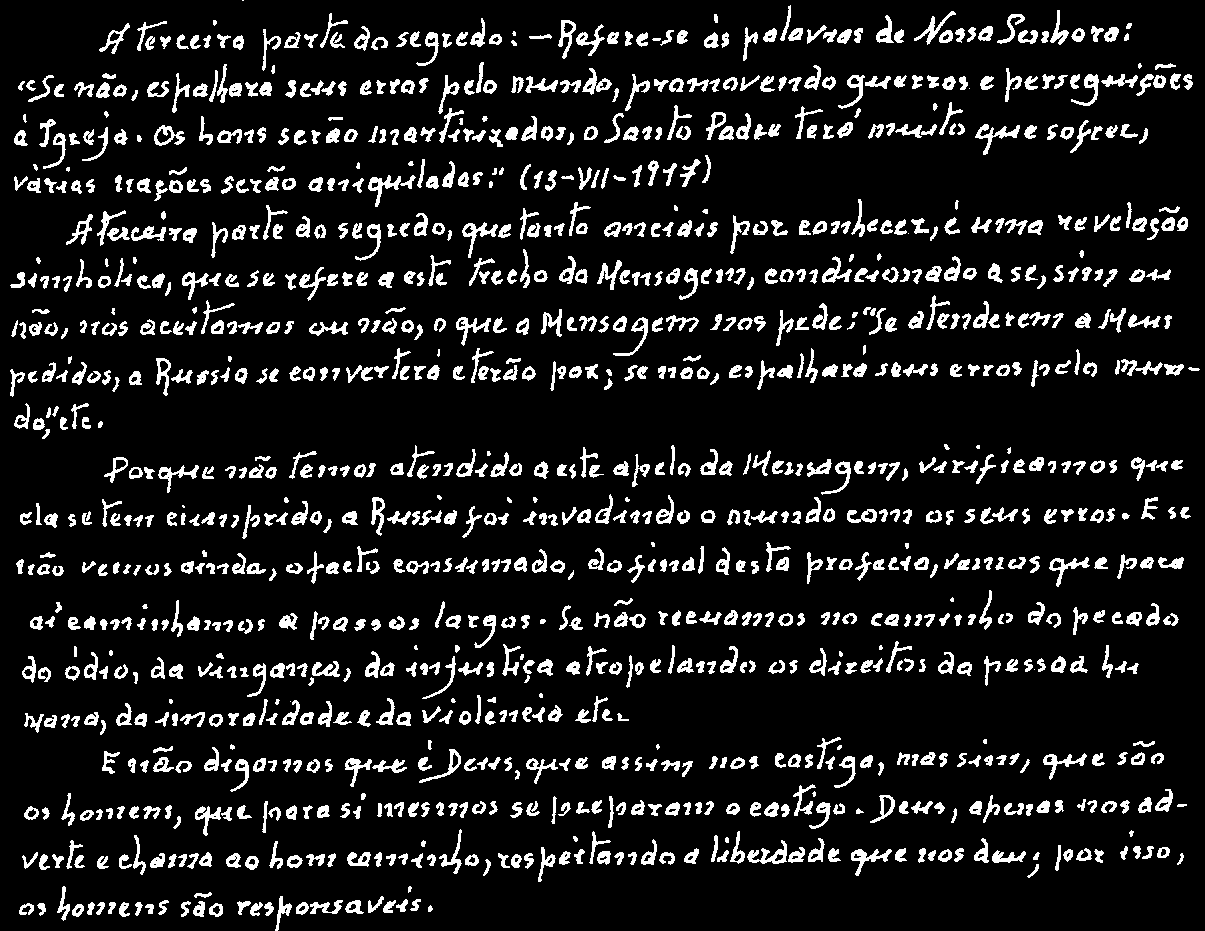 A terceira parte do segredo: — Refere-se às palavras de Nossa Senhora:
“Se não, espalhará seus erros pelo mundo, promovendo guerras e perseguições
à Igreja. Os bons serão martirizados, o Santo Padre terá muito que sofrer,
várias nações serão aniquiladas.” (13-VII-1917)
A terceira parte do segredo, que tanto anciais por conhecer, é uma revelação
simbólica, que se refere a este trecho da Mensagem, condicionado a se, sim ou
não, nós aceitamos ou não, o que a Mensagem nos pede: “Se atenderem a Meus
pedidos, a Russia se converterá e terão paz; se não, espalhará seus erros pelo mun-
do,” etc.
Porque não temos atendido a este apelo da Mensagem, virificamos que
ela se tem cumprido, a Russia foi invadindo o mundo com os seus erros. E se
não vemos ainda, o facto consumado, do final desta profecia, vamos que para
aí caminhamos a passos largos. Se não recuamos no caminho do pecado
do ódio, da vingança, da injustiça atropelando os direitos da pessoa hu
mana, da imoralidade e da violência etc.
E não digamos que é Deus, que assim nos castiga, mas sim, que são
os homens, que para si mesmos se preparam o castigo. Deus, apenas nos ad-
verte e chama ao bom caminho, respeitando a liberdade que nos deu; por isso,
os homens são responsaveis.